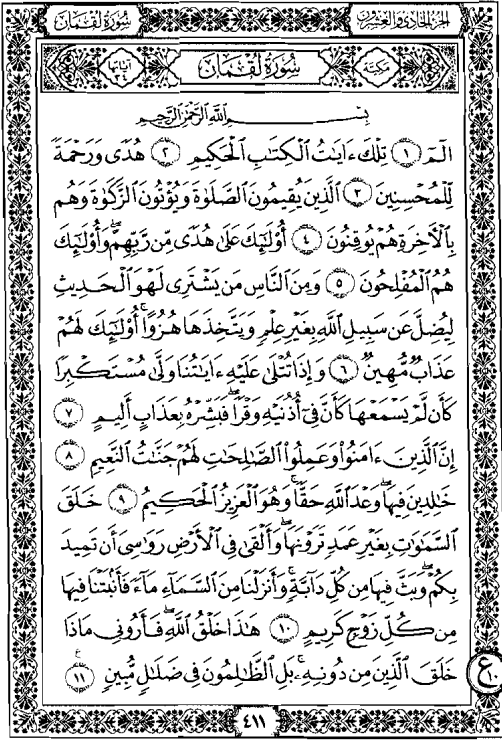 الجزء الحادي والعشرون
سورة لقمان
مكية
سُورَةُ لُقْمَان
آياتها ٣٤
بِسْمِ ٱللَّهِ ٱلرَّحْمَٰنِ ٱلرَّحِيمِ
الٓمٓ ١ تِلْكَ ءَايَٰتُ ٱلْكِتَٰبِ ٱلْحَكِيمِ ٢ هُدًى وَرَحْمَةً
لِّلْمُحْسِنِينَ ٣ ٱلَّذِينَ يُقِيمُونَ ٱلصَّلَوٰةَ وَيُؤْتُونَ ٱلزَّكَوٰةَ وَهُم
بِٱلْءَاخِرَةِ هُمْ يُوقِنُونَ ٤ أُو۟لَٰٓئِكَ عَلَىٰ هُدًى مِّن رَّبِّهِمْ ۖ وَأُو۟لَٰٓئِكَ
هُمُ ٱلْمُفْلِحُونَ ٥ وَمِنَ ٱلنَّاسِ مَن يَشْتَرِى لَهْوَ ٱلْحَدِيثِ
لِيُضِلَّ عَن سَبِيلِ ٱللَّهِ بِغَيْرِ عِلْمٍ وَيَتَّخِذَهَا هُزُوًا ۚ أُو۟لَٰٓئِكَ لَهُمْ
عَذَابٌ مُّهِينٌ ٦ وَإِذَا تُتْلَىٰ عَلَيْهِ ءَايَٰتُنَا وَلَّىٰ مُسْتَكْبِرًا
كَأَن لَّمْ يَسْمَعْهَا كَأَنَّ فِىٓ أُذُنَيْهِ وَقْرًا ۖ فَبَشِّرْهُ بِعَذَابٍ أَلِيمٍ ٧
إِنَّ ٱلَّذِينَ ءَامَنُوا۟ وَعَمِلُوا۟ ٱلصَّٰلِحَٰتِ لَهُمْ جَنَّٰتُ ٱلنَّعِيمِ ٨
خَٰلِدِينَ فِيهَا ۖ وَعْدَ ٱللَّهِ حَقًّا ۚ وَهُوَ ٱلْعَزِيزُ ٱلْحَكِيمُ ٩ خَلَقَ
ٱلسَّمَٰوَٰتِ بِغَيْرِ عَمَدٍ تَرَوْنَهَا ۖ وَأَلْقَىٰ فِى ٱلْأَرْضِ رَوَٰسِىَ أَن تَمِيدَ
بِكُمْ وَبَثَّ فِيهَا مِن كُلِّ دَآبَّةٍ ۚ وَأَنزَلْنَا مِنَ ٱلسَّمَآءِ مَآءً فَأَنۢبَتْنَا فِيهَا
مِن كُلِّ زَوْجٍ كَرِيمٍ ١٠ هَٰذَا خَلْقُ ٱللَّهِ فَأَرُونِى مَاذَا
خَلَقَ ٱلَّذِينَ مِن دُونِهِۦ ۚ بَلِ ٱلظَّٰلِمُونَ فِى ضَلَٰلٍ مُّبِينٍ ١١
ع ١٠
٤١١